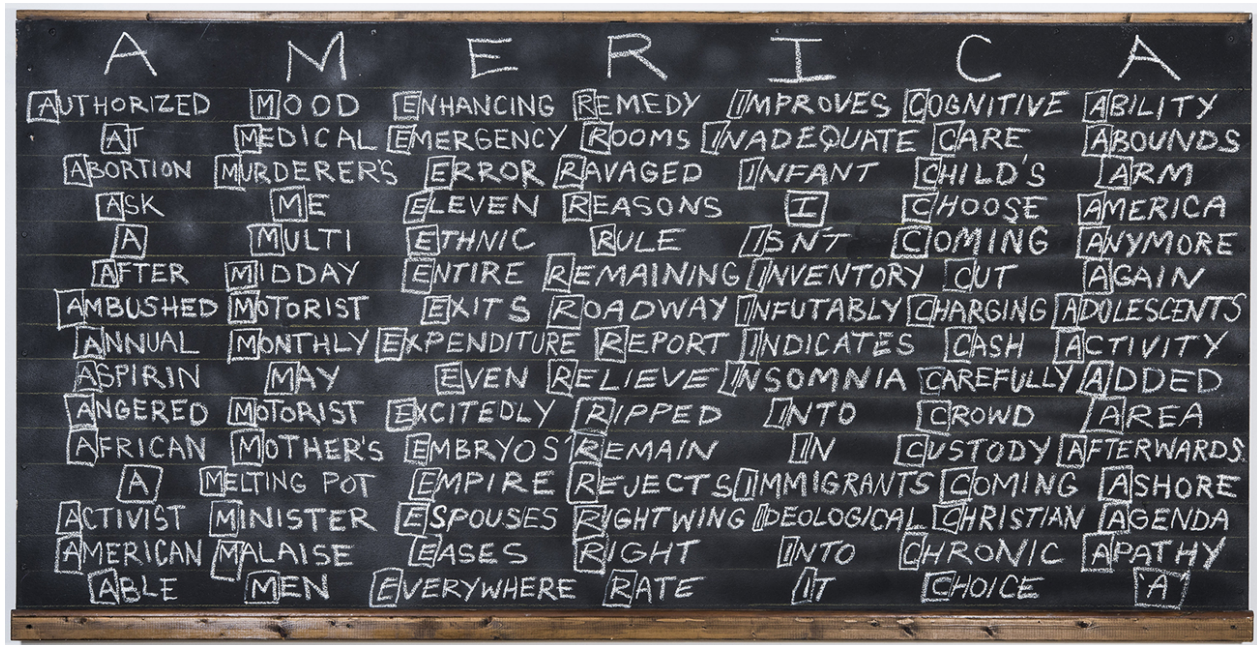 A M E R I C A
AUTHORIZED MOOD ENHANCING REMEDY IMPROVES COGNITIVE ABILITY
AT MEDICAL EMERGENCY ROOMS INADEQUATE CARE ABOUNDS
ABORTION MURDERER'S ERROR RAVAGED INFANT CHILD'S ARM
ASK ME ELEVEN REASONS I CHOOSE AMERICA
A MULTI ETHNIC RULE ISN'T COMING ANYMORE
AFTER MIDDAY ENTIRE REMAINING INVENTORY CUT AGAIN
AMBUSHED MOTORIST EXITS ROADWAY INFUTABLY CHARGING ADOLESCENTS
ANNUAL MONTHLY EXPENDITURE REPORT INDICATES CASH ACTIVITY
ASPIRIN MAY EVEN RELIEVE INSOMNIA CAREFULLY ADDED
ANGERED MOTORIST EXCITEDLY RIPPED INTO CROWD AREA
AFRICAN MOTHER'S EMBRYOS' REMAIN IN CUSTODY AFTERWARDS
A MELTING POT EMPIRE REJECTS IMMIGRANTS COMING ASHORE
ACTIVIST MINISTER ESPOUSES RIGHTWING IDEOLOGICAL CHRISTIAN AGENDA
AMERICAN MALAISE EASES RIGHT INTO CHRONIC APATHY
ABLE MEN EVERYWHERE RATE IT CHOICE 'A'